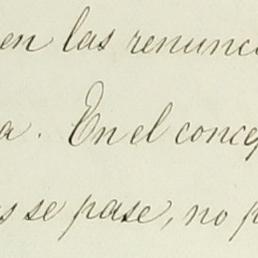 en las renunc
a. En el conce
s se pase, no p